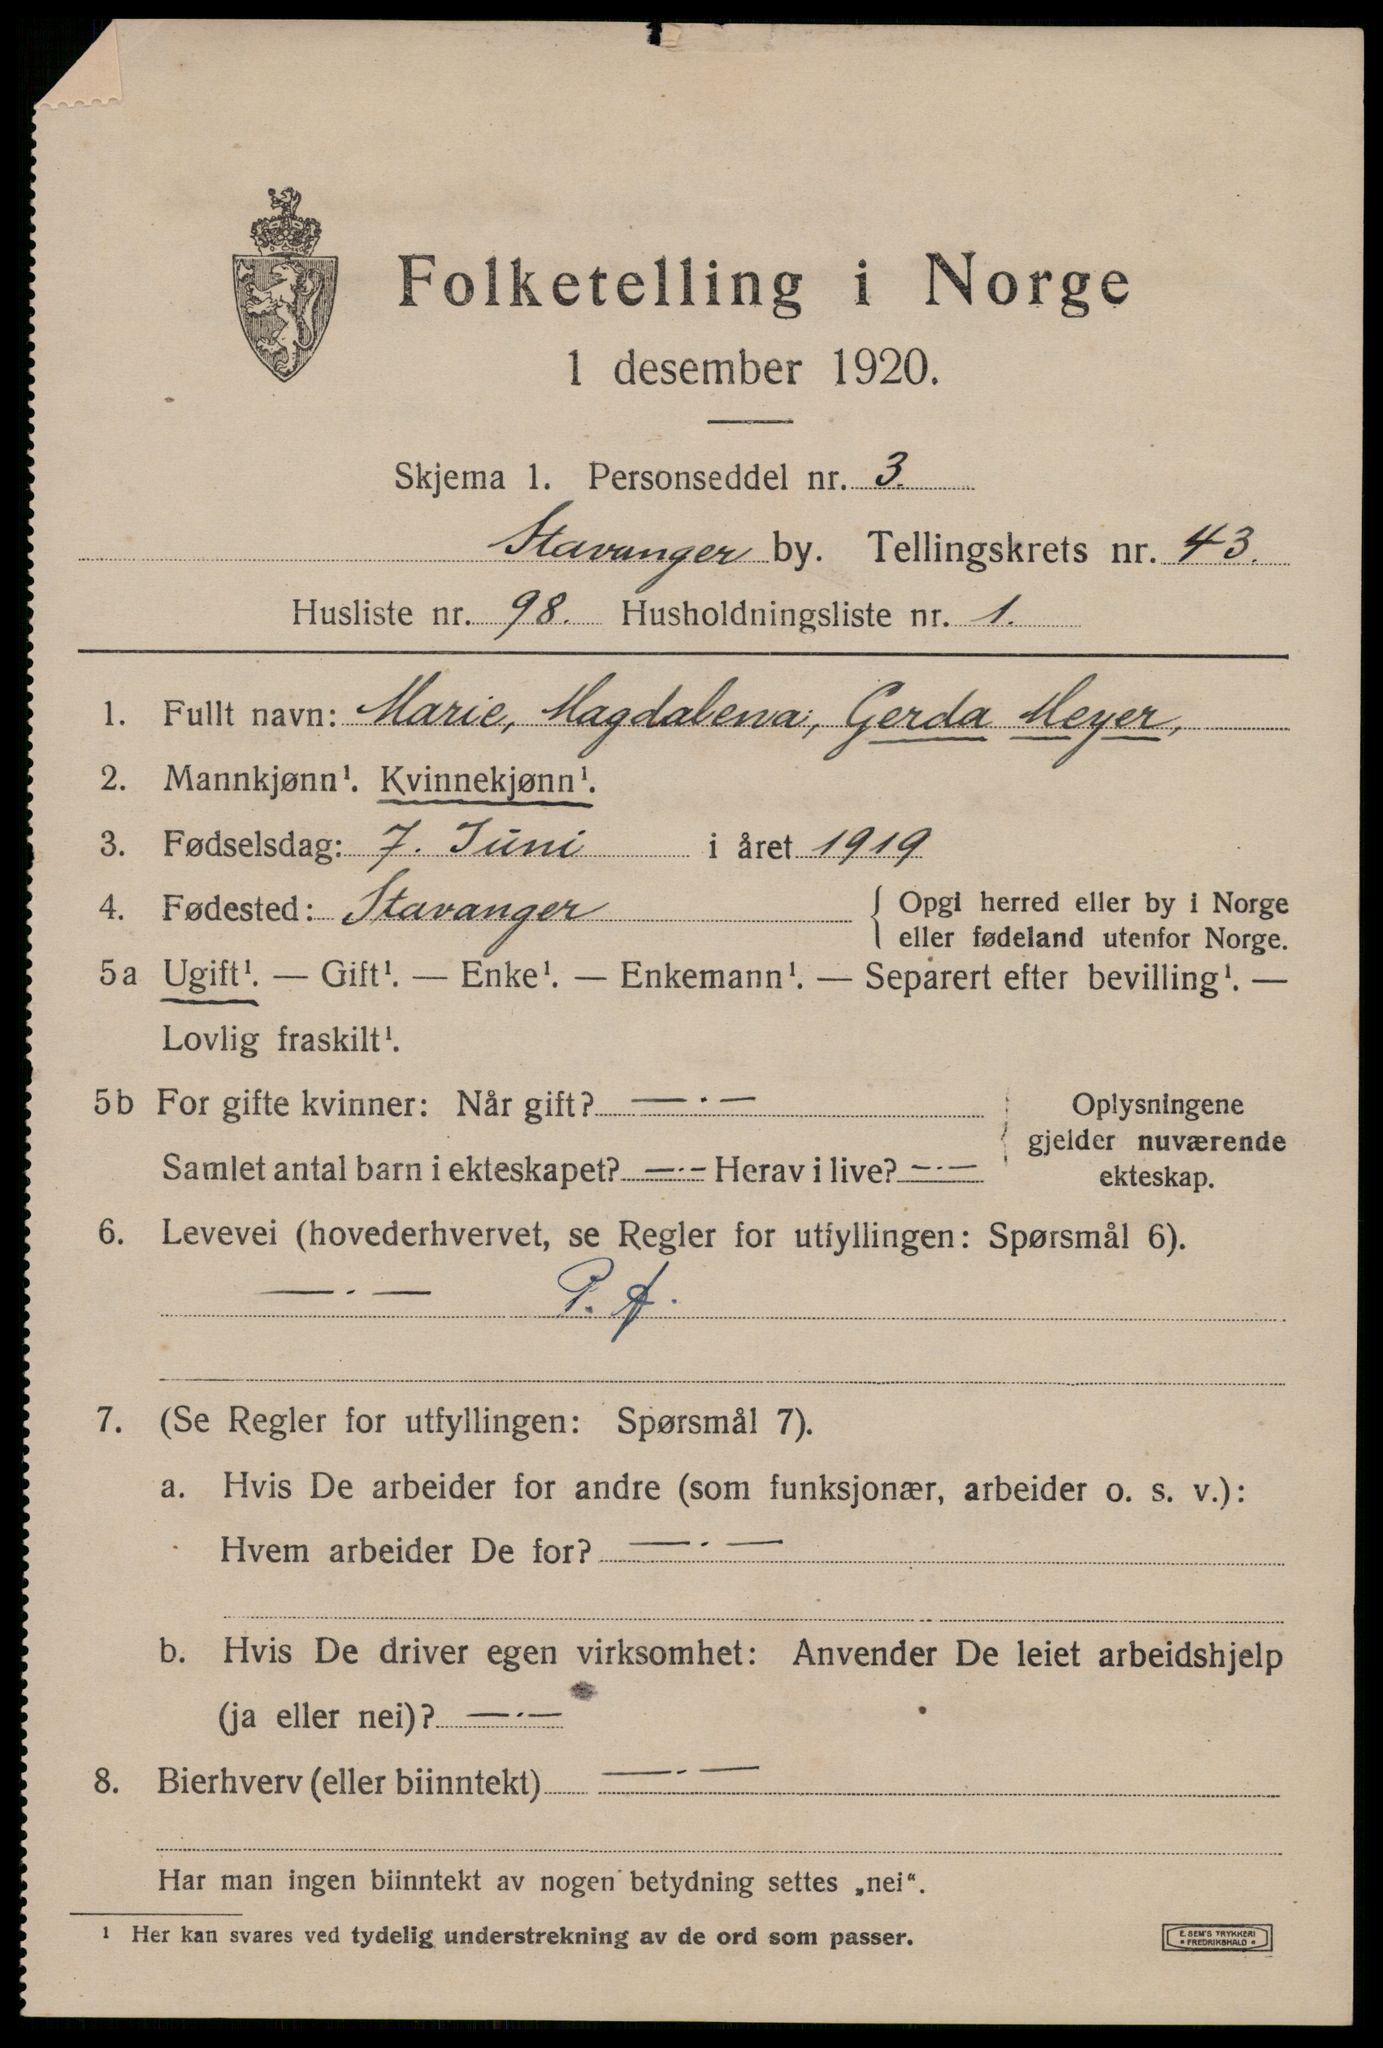 Folketelling i Norge
1 desember 1920.
Skjema 1. Personseddel nr. 3.
Stavanger by. Tellingskrets nr. 43.
Husliste nr. 98. Husholdningsliste nr. 1.
1. Fullt navn: Marie, Magdalena, Gerda Meyer,
2. Mannkjønn¹. Kvinnekjønn¹.
3. Fødselsdag: 7. Juni i året 1919
4. Fødested: Stavanger { Opgi herred eller by i Norge
eller fødeland utenfor Norge.
5a Ugift¹. — Gift¹. — Enke¹. — Enkemann¹. — Separert efter bevilling¹. —
Lovlig fraskilt¹.
5b For gifte kvinner: Når gift? — . — Oplysningene
gjelder nuværende
Samlet antal barn i ekteskapet? — . — Herav i live? — . — ekteskap.
6. Levevei (hovederhvervet, se Regler for utfyllingen: Spørsmål 6).
— . — P. A.
7. (Se Regler for utfyllingen: Spørsmål 7).
a. Hvis De arbeider for andre (som funksjonær, arbeider o. s. v.):
Hvem arbeider De for? — . —
b. Hvis De driver egen virksomhet: Anvender De leiet arbeidshjelp
(ja eller nei)? — . —
8. Bierhverv (eller biinntekt) — . —
Har man ingen biinntekt av nogen betydning settes „nei“.
¹ Her kan svares ved tydelig understrekning av de ord som passer.
E. SEM'S TRYKKERI
* FREDRIKSHALD *